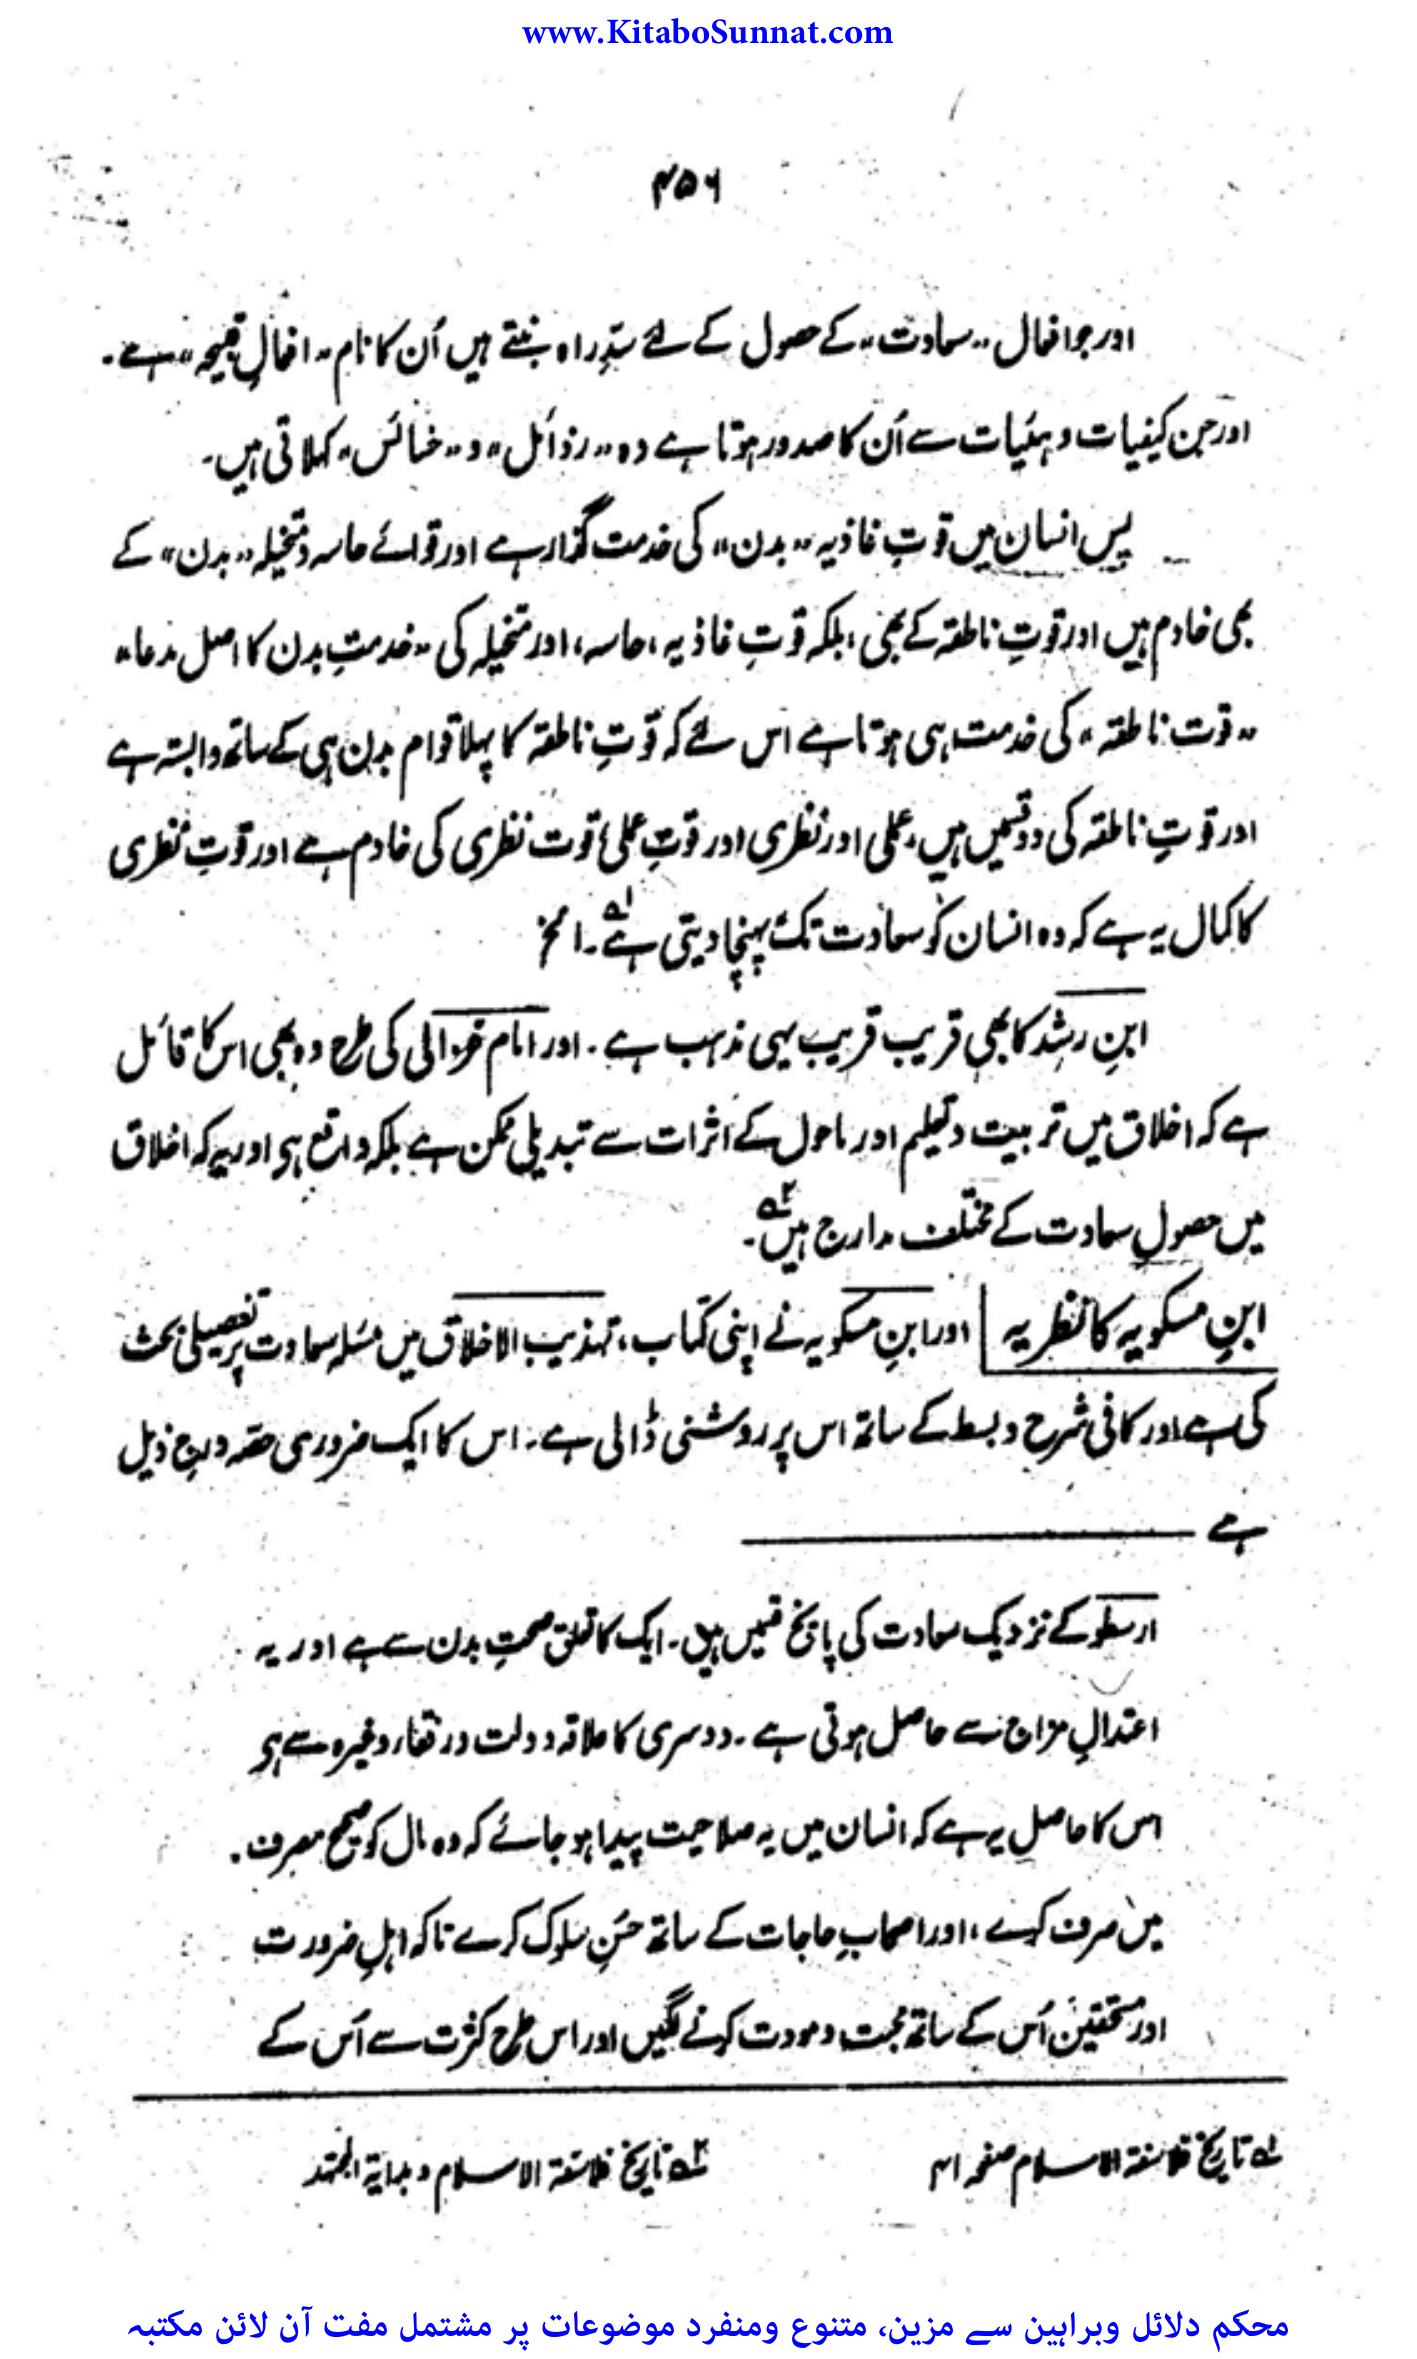 www.KitaboSunnat.com
۴۵۶
اور جو افعال "سعادت" کے حصول کے لئے سدِّ راہ بنتے ہیں اُن کا نام "افعالِ قبیحہ" ہے۔
اور جن کیفیات و ہئیات سے اُن کا صدور ہوتا ہے وہ "رذائل" و "خسائس" کہلاتی ہیں۔
پس انسان میں قوتِ غاذیہ "بدن" کی خدمت گذار ہے اور قوائے حاسہ و متخیلہ "بدن" کے
بھی خادم ہیں اور قوتِ ناطقہ کے بھی، بلکہ قوتِ غاذیہ، حاسہ، اور متخیلہ کی "خدمتِ بدن کا اصل مدعا"
"قوت ناطقہ" کی خدمت ہی ہوتا ہے اس لئے کہ قوّتِ ناطقہ کا پہلا قوام بدن ہی کے ساتھ وابستہ ہے
اور قوتِ ناطقہ کی دو قسمیں ہیں، عملی اور نظری اور قوتِ عملی قوت نظری کی خادم ہے اور قوتِ نظری
کا کمال یہ ہے کہ وہ انسان کو سعادت تک پہنچا دیتی ہے ۱؎۔ الخ
ابنِ رشد کا بھی قریب قریب یہی مذہب ہے۔ اور امام غزالی کی طرح وہ بھی اس کا قائل
ہے کہ اخلاق میں تربیت و تعلیم اور ماحول کے اثرات سے تبدیلی ممکن ہے بلکہ واقع ہی اور یہ کہ اخلاق
میں حصولِ سعادت کے مختلف مدارج ہیں ۲؎۔
ابنِ مسکویہ کا نظریہ | اور ابنِ مسکویہ نے اپنی کتاب، تہذیب الاخلاق میں مسئلہ سعادت پر تفصیلی بحث
کی ہے اور کافی شرح و بسط کے ساتھ اس پر روشنی ڈالی ہے۔ اس کا ایک ضروری حصّہ درج ذیل
ہے
ارسطو کے نزدیک سعادت کی پانچ قسمیں ہیں۔ ایک کا تعلق صحتِ بدن سے ہے اور یہ
اعتدالِ مزاج سے حاصل ہوتی ہے۔ دوسری کا علاقہ دولت و رفقاء وغیرہ سے ہی
اس کا حاصل یہ ہے کہ انسان میں یہ صلاحیت پیدا ہو جائے کہ وہ مال کو صحیح مصرف
میں صرف کرے، اور اصحابِ حاجات کے ساتھ حُسنِ سلوک کرے تاکہ اہلِ ضرورت
اور مستحقین اُس کے ساتھ محبت و مودت کرنے لگیں اور اس طرح کثرت سے اُس کے
۱؎ تاریخ فلاسفۃ الاسلام صفحہ ۴۱
۲؎ تاریخ فلاسفۃ الاسلام و بدایۃ المجتہد
محکم دلائل وبراہین سے مزین، متنوع ومنفرد موضوعات پر مشتمل مفت آن لائن مکتبہ